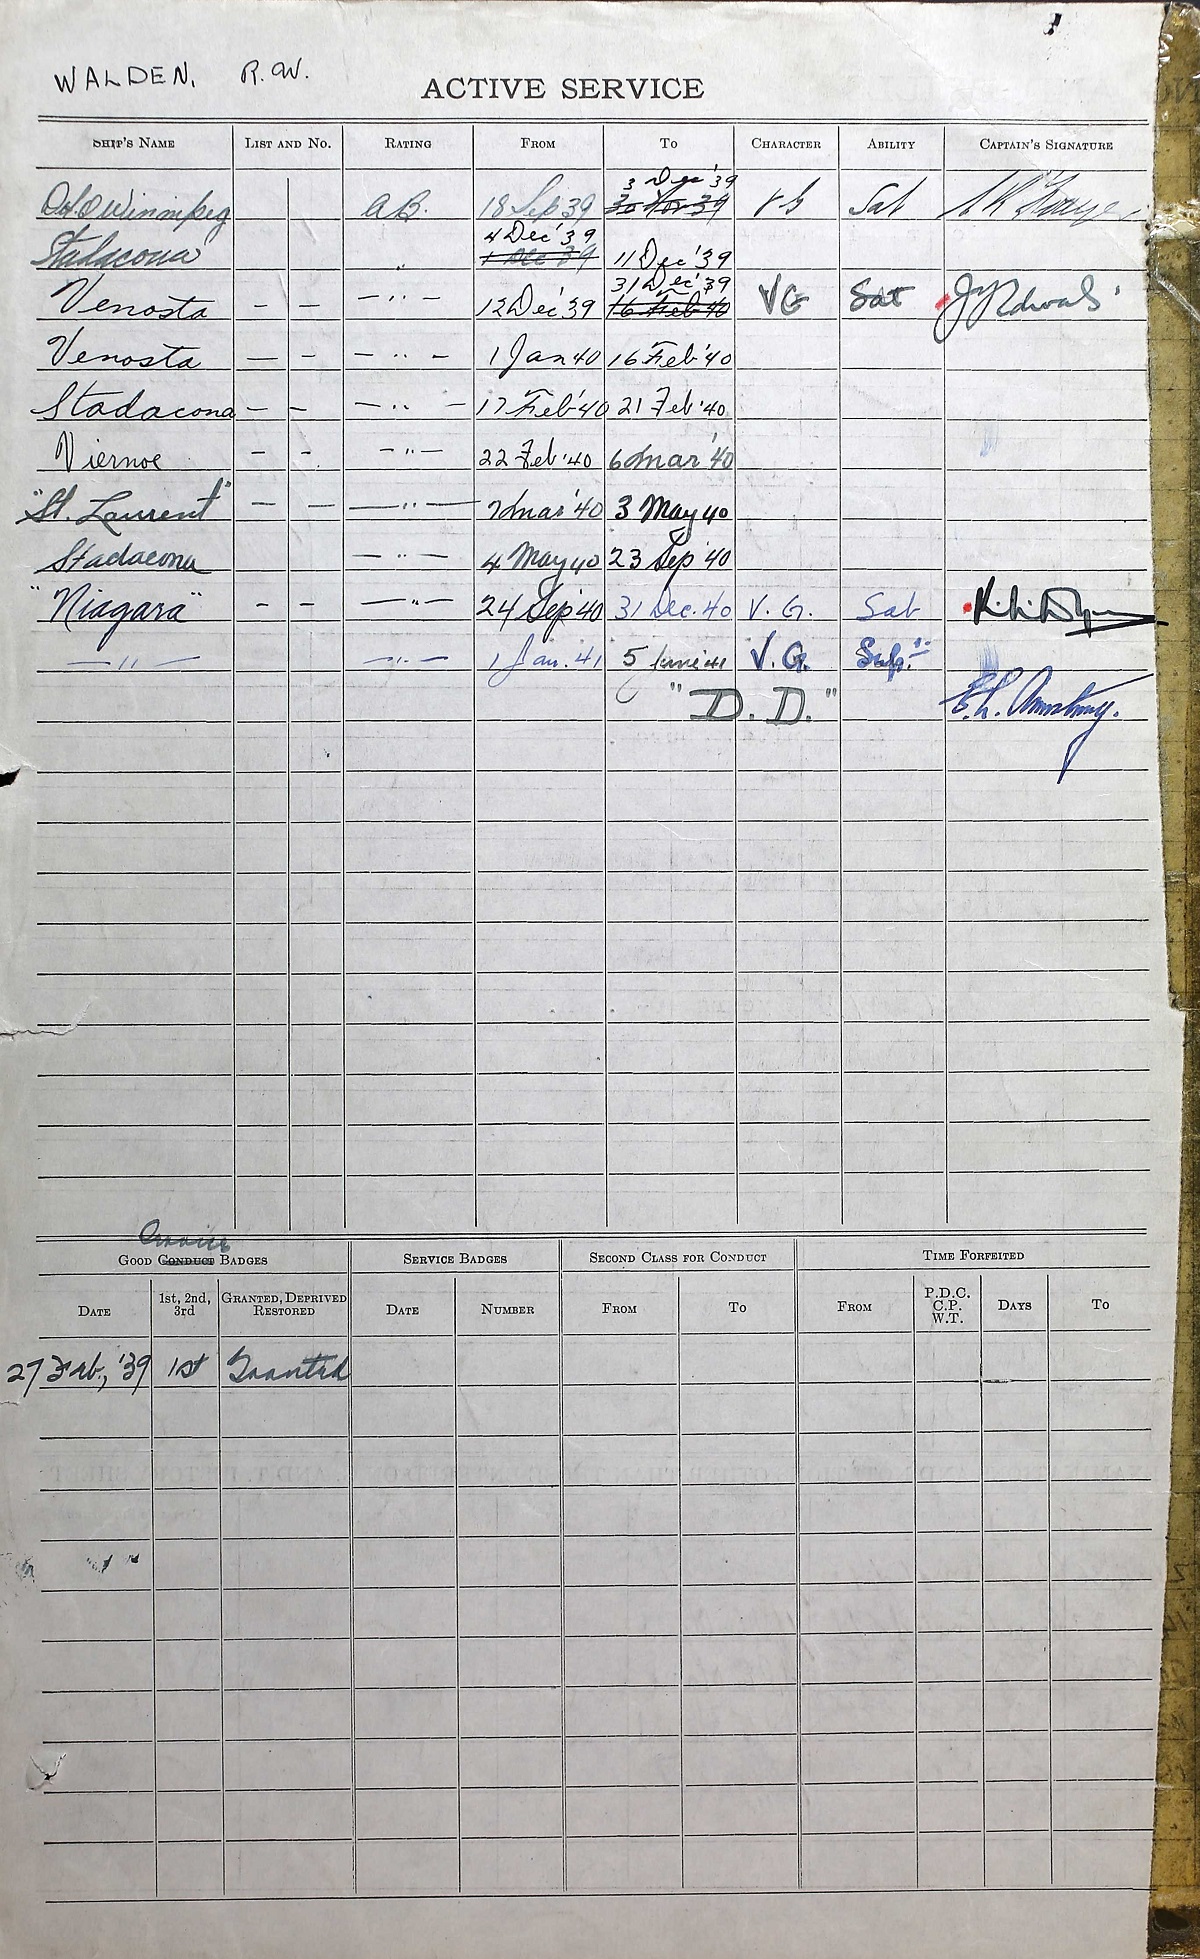 WALDEN, R.W.
ACTIVE SERVICE
SHIP'S NAME LIST AND NO. RATING FROM TO CHARACTER ABILITY CAPTAIN'S SIGNATURE
3 Dec '39
Winnipeg A.B. 18 Sep 39 30 Nov 39 VG Sat
4 Dec '39
Stadacona " 1 Dec 39 11 Dec '39
31 Dec '39
Venosta - - - " - 12 Dec '39 16 Feb '40 VG Sat
Venosta - - - " - 1 Jan 40 16 Feb '40
Stadacona - - - " - 17 Feb '40 21 Feb '40
Viernoe - - - " - 22 Feb '40 6 Mar '40
"St. Laurent" - - - " - 7 Mar '40 3 May 40
Stadacona - " - 4 May 40 23 Sep '40
"Niagara" - - - " - 24 Sep '40 31 Dec. 40 V.G. Sat
- " - - " - 1 Jan. 41 5 June 41 V.G.
"D.D." Armstrong.
GOOD CONDUCT BADGES SERVICE BADGES SECOND CLASS FOR CONDUCT TIME FORFEITED
DATE 1st, 2nd, 3rd GRANTED, DEPRIVED RESTORED DATE NUMBER FROM TO FROM P.D.C. C.P. W.T. DAYS TO
27 Feb., '39 1st Granted